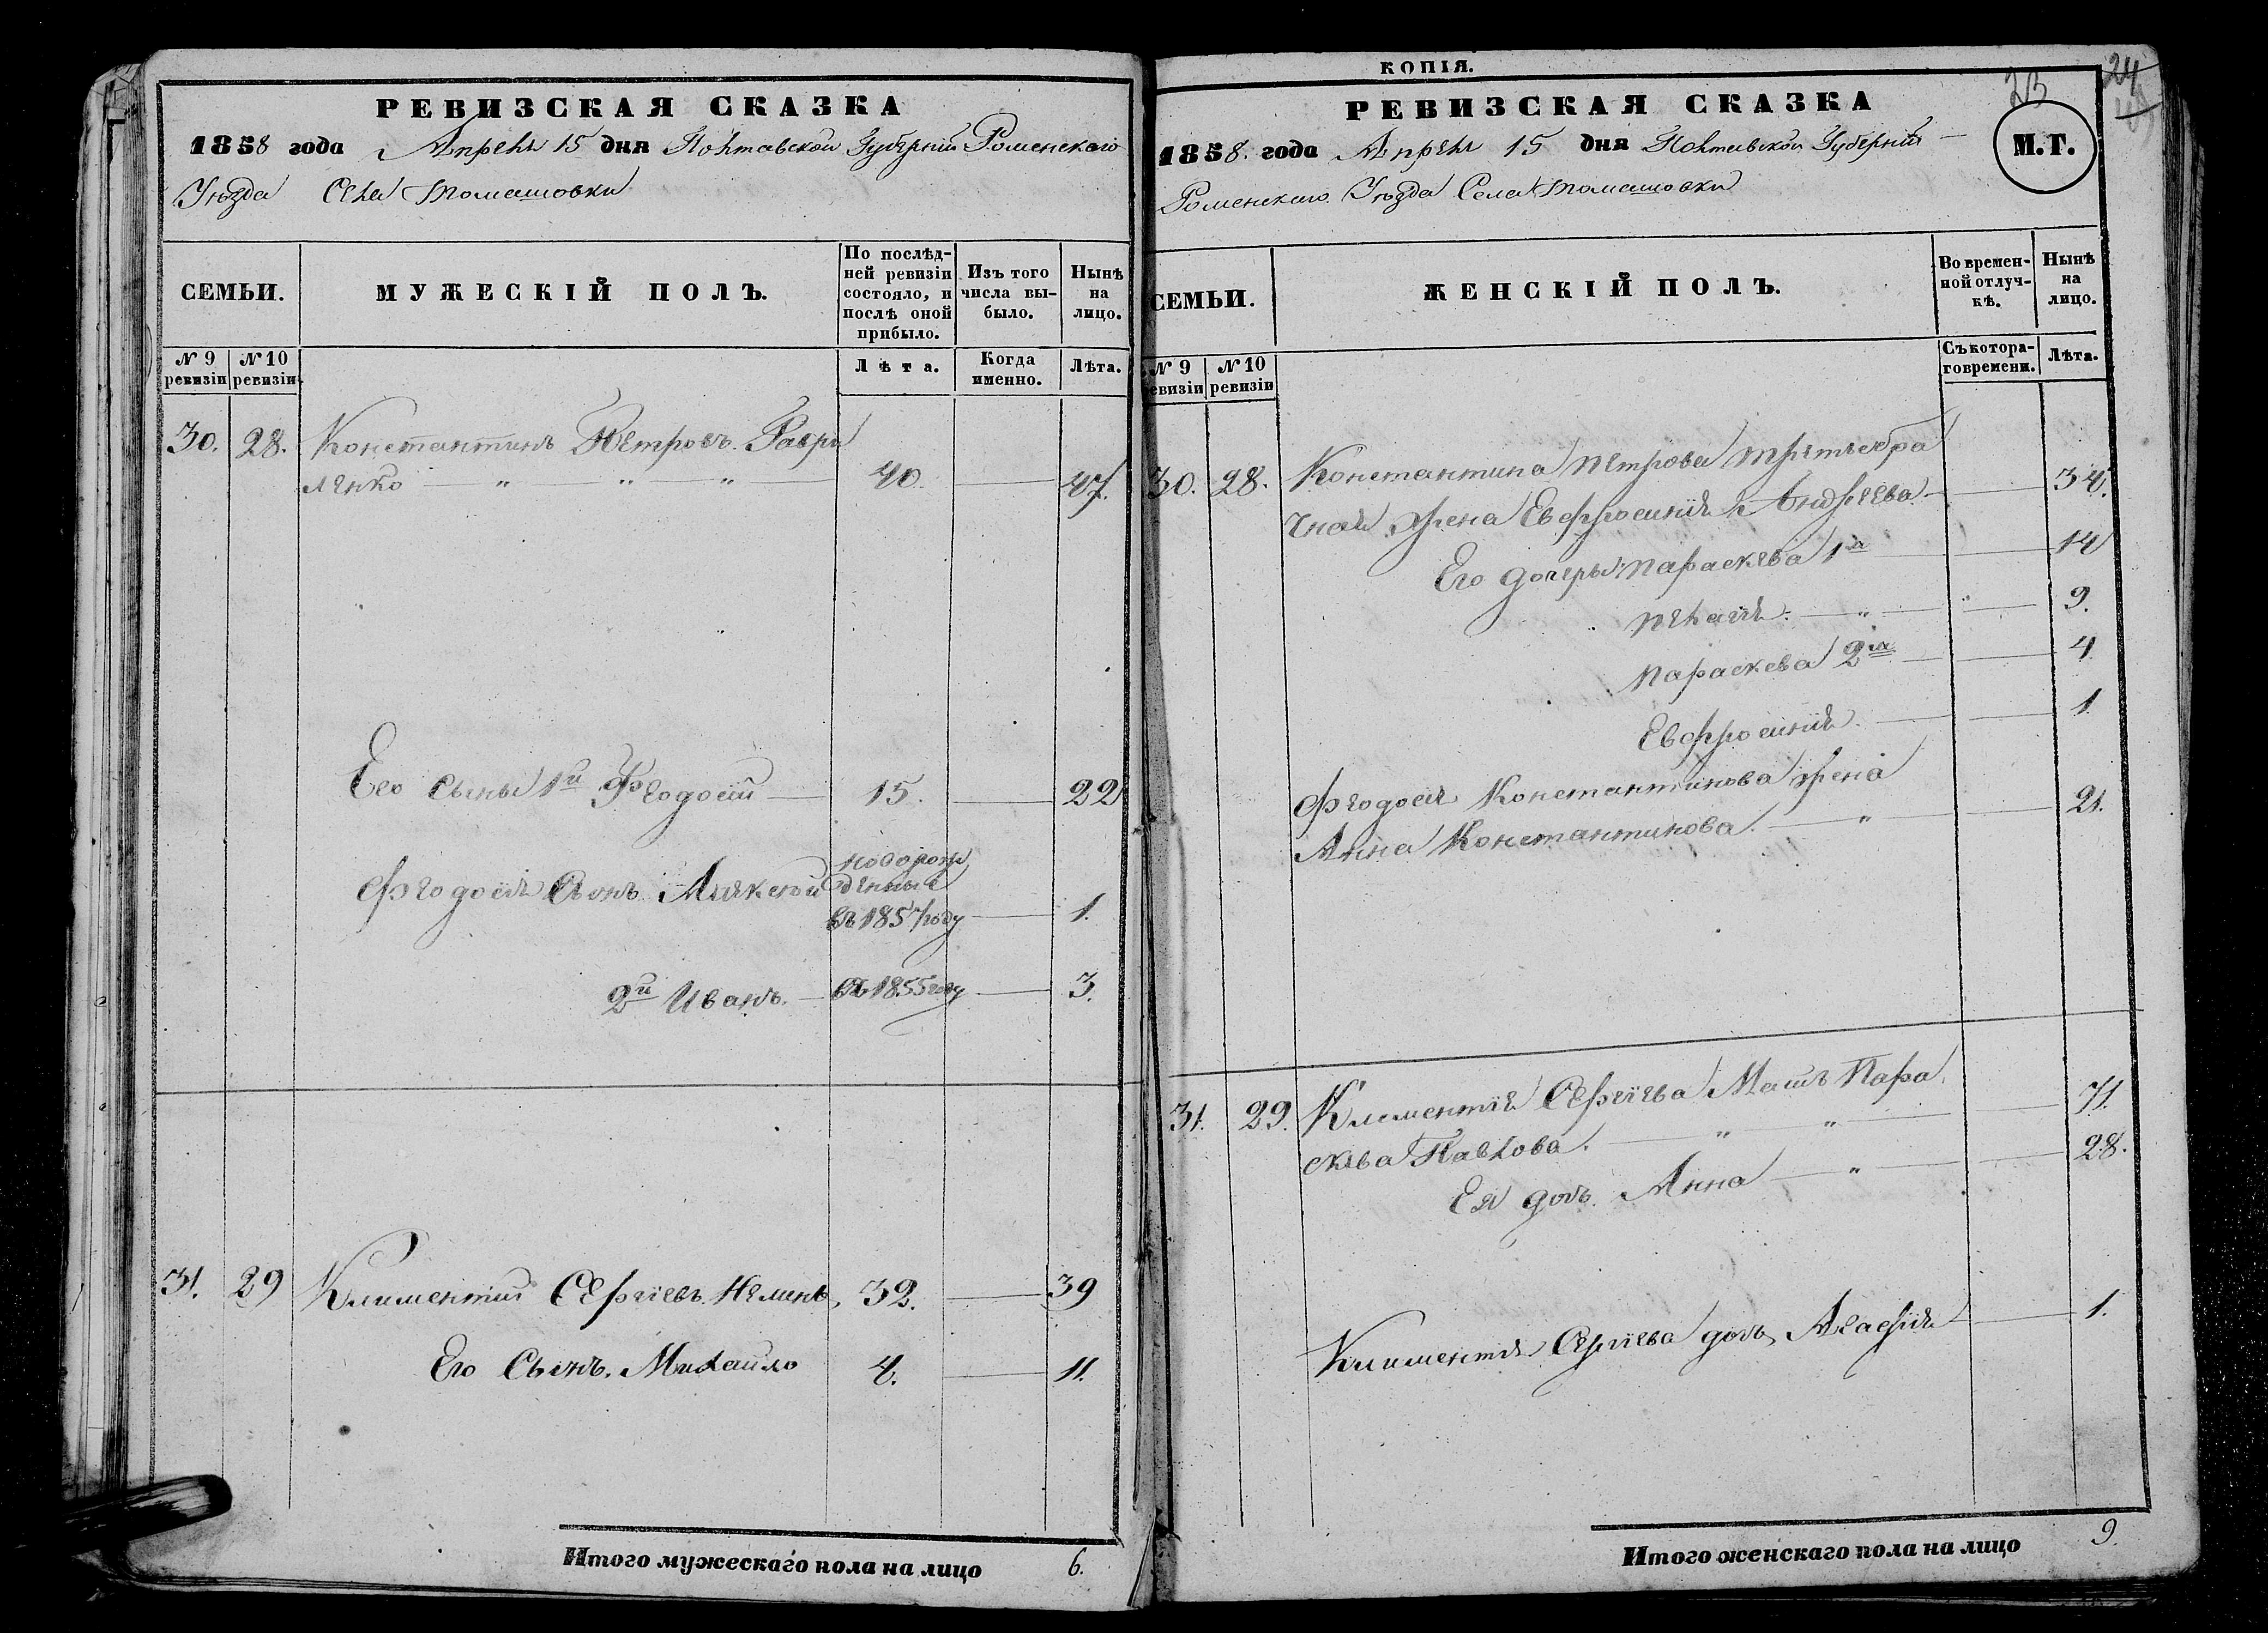 РЕВИЗСКАЯ СКАЗКА
1858 года Апреля 15 дня Полтавской Губернии Роменскаго
Уѣзда Села Томашовки
СЕМЬИ.
МУЖЕСКІЙ ПОЛЪ.
По послѣд-
ней ревизіи
состояло, и
послѣ оной
прибыло.
Изъ того
числа вы-
было.
Нынѣ
на
лицо.
№ 9 ревизіи
№ 10 ревизіи
Лѣта.
Когда именно.
Лѣта.
30. 28. Константинъ Петровъ Гаври
ленко 40 47.
Его сыны 1й Феодосій 15. 22
Феодосія Сынъ Алексей
въ 1857 году 1.
2й Иванъ. въ 1855 году 3.
31. 29 Климентий Сергіевъ 32. 39
Его Сынъ. Михайло 4. 11.
Итого мужескаго пола на лицо 6.
КОПІЯ.
23 24
РЕВИЗСКАЯ СКАЗКА
М.Т.
1858. года Апреля 15 дня Полтавской Губерніи
Роменскаго Уѣзда Села Томашовки
СЕМЬИ.
ЖЕНСКІЙ ПОЛЪ.
Во времен-
ной отлуч-
кѣ.
Нынѣ
на
лицо.
№ 9 ревизіи
№ 10 ревизіи
Съ котора-
го времени.
Лѣта.
30. 28. Константина Петрова третьебра
чная жена Евфросинія Андреева 34.
Его дочеры Параскева 1я 14
Пелагія 9.
Параскева 2я 4
Евфросинія 1
Феодосія Константинова жена
Анна Константинова. 21.
31. 29. Климентія Сергіева Мать Пара
скева Павлова. 71.
Ея дочь Анна 28.
Климентія Сергіева дочь Агафія 1.
Итого женскаго пола на лицо 9.